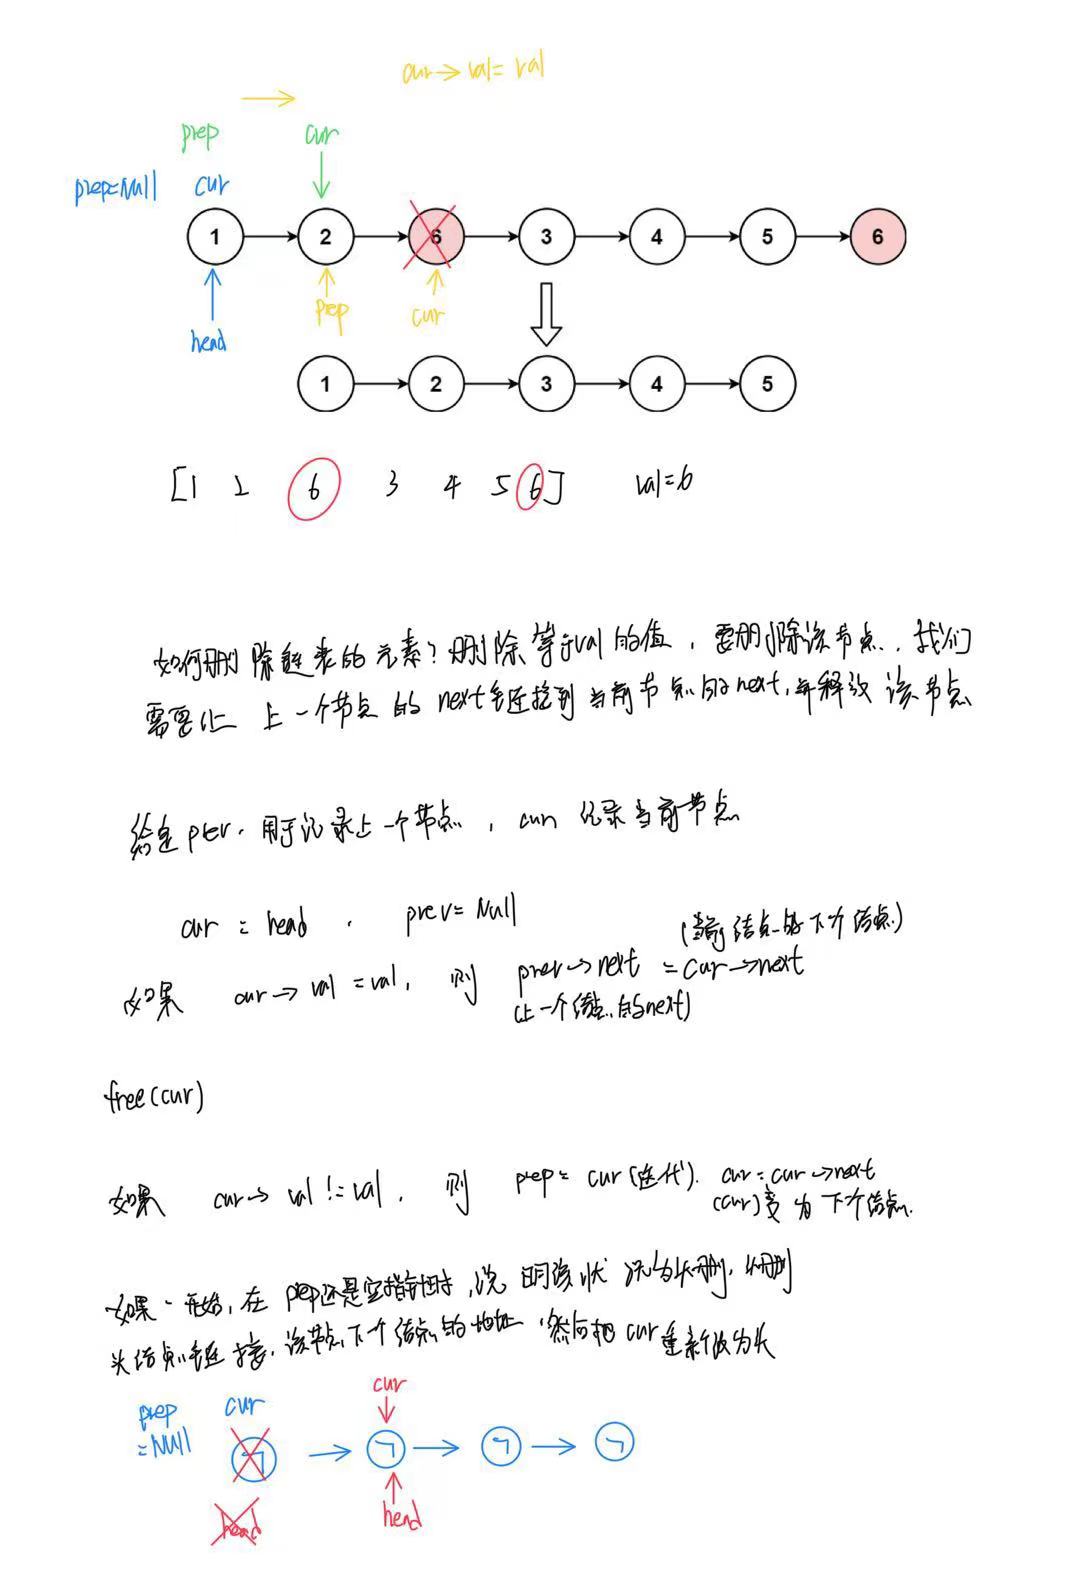 cur→val=val
prep
cur
prep=Null
cur
1
2
6
3
4
5
6
prep
cur
head
1
2
3
4
5
[1 2 6 3 4 5 6] val=6
如何删除链表的元素?删除等于val的值,要删除该节点,我们
需要让上一个节点的next链接到当前节点的next,并释放该节点
给定prev,用于记录上一个节点,cur记录当前节点
cur=head, prev=Null
(当前结点的下个结点)
如果 cur→val=val, 则 prev→next=cur→next
(上一个结点的next)
free(cur)
如果 cur→val!=val, 则 prep=cur(迭代). cur=cur→next
(cur)变为下个结点.
如果一开始,在prep还是空指针时,说明该状况为头删,头删
头结点链接,该节点下个结点的地址,然后把cur重新设为头
cur
prep
=Null
cur
7
7
7
7
head
head